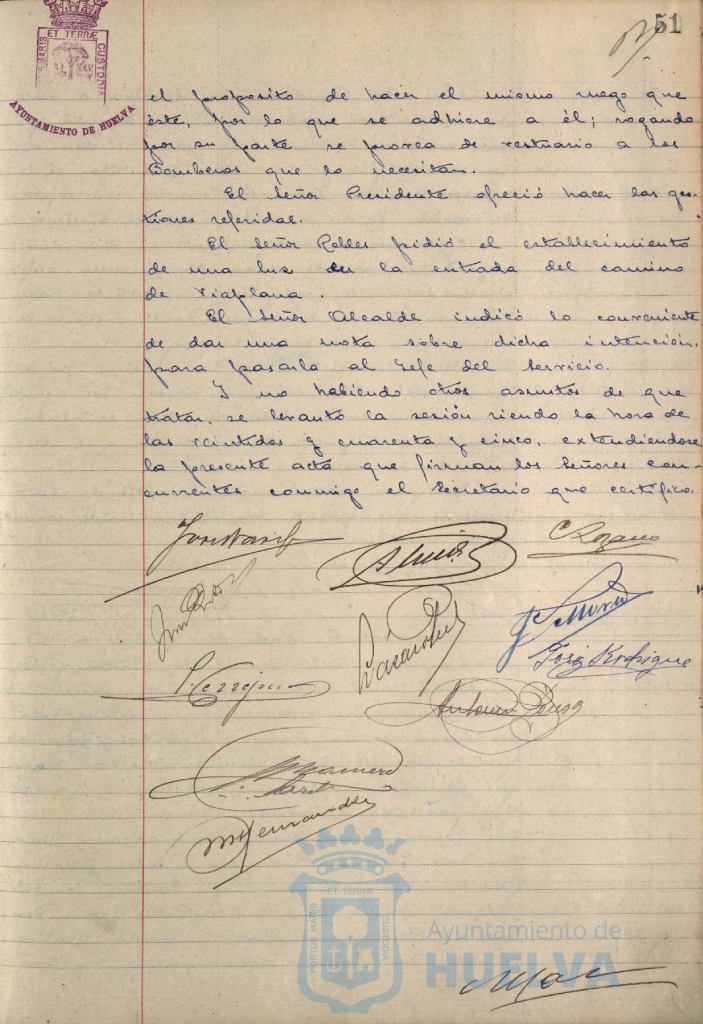 51
PORTUS MARIS ET TERRÆ CUSTODIA
AYUNTAMIENTO DE HUELVA
el proposito de hacer el mismo ruego que
éste, por lo que se adhiere a él; rogando
por su parte se provea de vestuario a los
Bomberos que lo necesitan.
El Señor Presidente ofreció hacer las ges-
tiones referidas.
El Señor Robles pidió el establecimiento
de una luz en la entrada del camino
de Viaplana.
El Señor Alcalde indicó lo conveniente
de dar una nota sobre dicha intención,
para pasarla al Jefe del Servicio.
Y no habiendo otros asuntos de que
tratar, se levantó la sesión siendo la hora de
las veintidos y cuarenta y cinco, extendiendose
la presente acta que firman los Señores con-
currentes conmigo el Secretario que certifico.
José Rodrigue
Antonio
Hernandez
PORTUS MARIS ET TERRE CUSTODIA
Ayuntamiento de
HUELVA